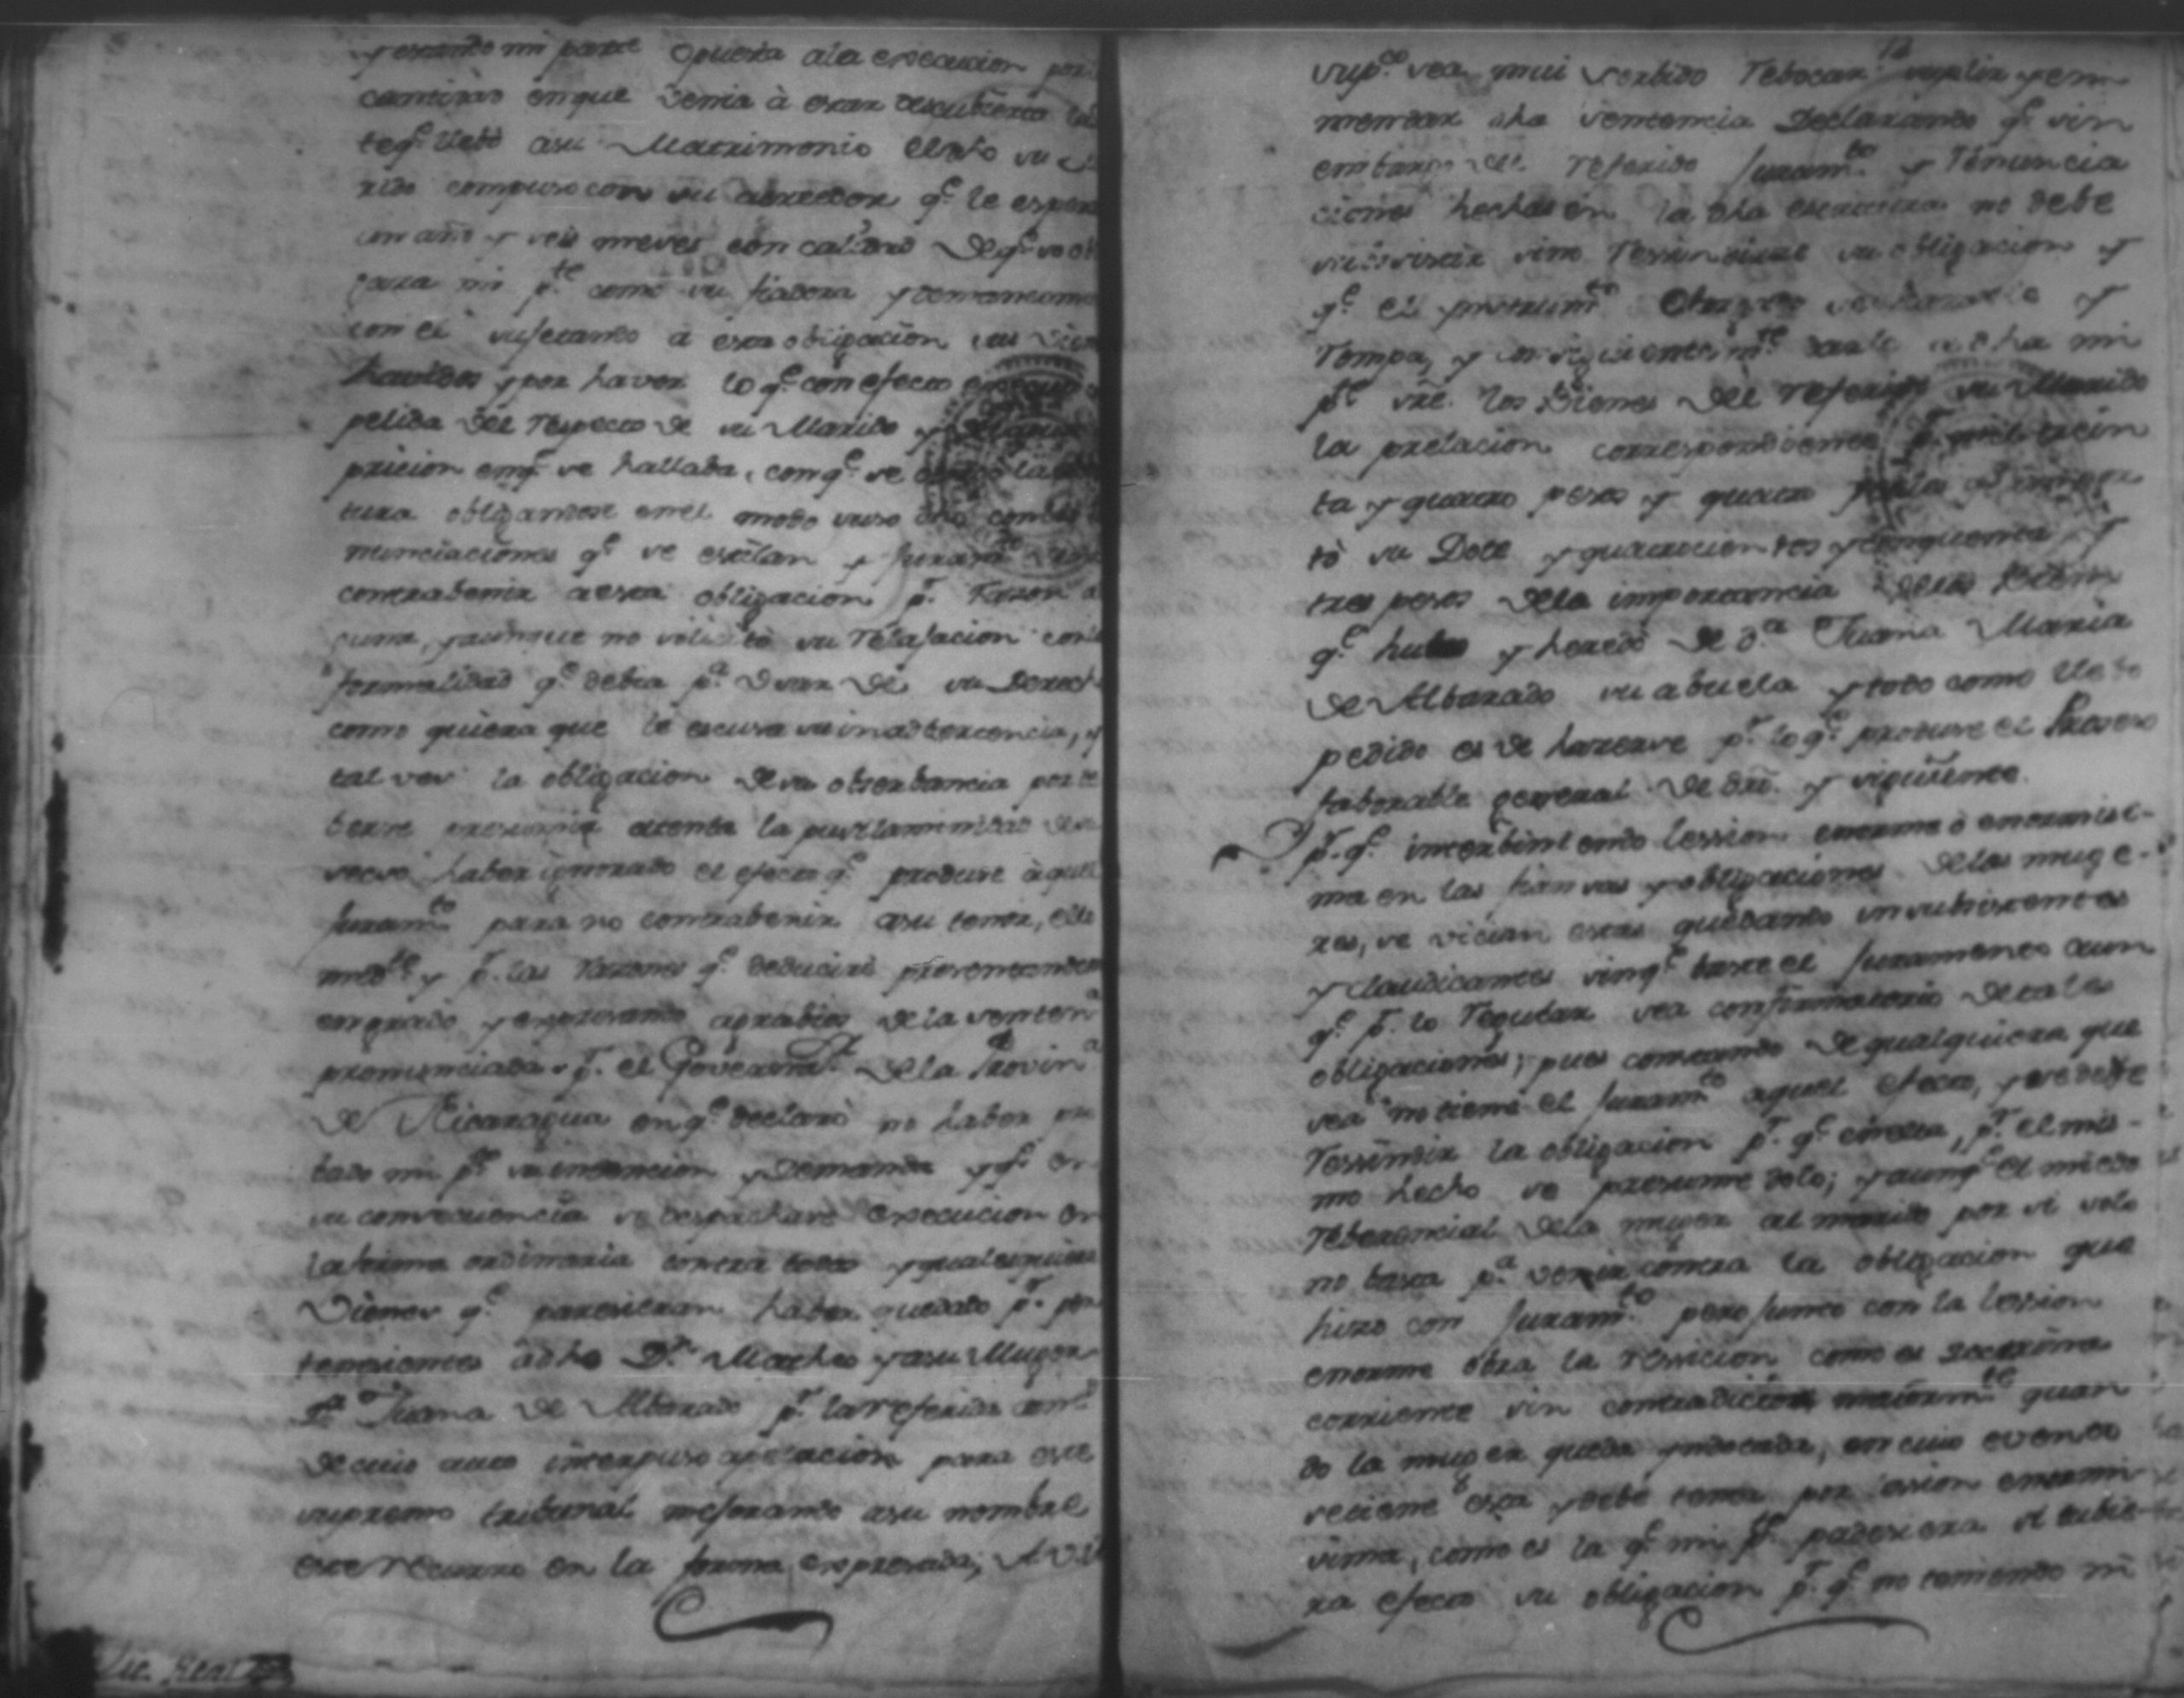 y estando mi parte opuesta a la execucion por
cantidad en que venia à estar descubierta
te q.e llebó a su Matrimonio el dho su
rido compuso con su acrredor q.e le espera
un año y seis meses con calidad de q.e se ob
gara mi p.te como su fiadora y demancomun
con el sujetando à esta obligacion sus vien
havidos y por haver lo q.e con efecto
pelida del respecto de su Marido y
pricion en q.e se hallaba, con q.e se
tura obligandose en el modo suso dho con
nunciaciones q.e se estilan y Juram.to
contrabenir a esta obligacion p.r razon a
guna, y aunque no solicitó su relajacion con la
formalidad q.e debia p.a vsar de su Derech
como quiera que le escusa su inadbertencia, y
tal ves la obligacion de su obserbancia por de
berse presumir atenta la pusilanimidad de su
secso haber ignorado el efecto q.e produse àquel
Juram.to para no contrabenir a su tenor, este
med.te y p.r las razones q.e deduciré presentando
en grado y expresando agrabios de la senten.a
pronunciada p.r el Governa.r de la Provin.a
de Nicaragua en q.e declaró no haber pro
bado mi p.te su intencion y Demanda y q.e en
su consecuencia se despachase execucion en
la forma ordinaria contra todos y qualesquiera
Vienes q.e paresieran haber quedado p.r per
tenesientes à dho D.n Matheo y a su Muger
D.a Juana de Albarado p.r la referida cant.d
de cuio auto interpuso apelacion para este
supremo tribunal mejorando a su nombre
este recurso en la forma expresada, A V.
sup.co sea mui serbido rebocar suplir y em
mendar dha sentencia Declarando q.e sin
embargo del referido Juram.to y renuncia
ciones hechas en la dha escriptura no debe
subsistir sino ressindirse su obligacion y
q.e el instrum.to
rompa, y consiguientem.te darle a dha mi
p.te sre. los Bienes del referido su Marido
la prelacion correspondiente p.r mil trein
ta y quatro pesos y quatro reales a q.e impor
tó su Dote y quatrocientos y cinquenta y
tres pesos de la importancia de los Bienes
q.e hubo y heredó de D.a Juana Maria
de Albarado su abuela y todo como llebo
pedido es de haserse p.r lo q.e produse el Proseso
faborable general de dro. y siguiente.
P.r q.e interbiniendo lession enorme ò enormisi-
ma en las fianzas y obligaciones de las muge-
res, se vician estas quedando insubsistentes
y claudicantes sin q.e baste el Juramento aun
q.e p.r lo regular sea confirmatorio de tales
obligaciones; pues constando de qualquiera que
sea no tiene el Juram.to aquel efecto, y se debe
ressindir la obligacion p.r q.e p.r el mis-
mo hecho se presume dolo; y aunq.e el miedo
reberencial de la muger al marido por si solo
no basta p.a venir contra la obligacion que
hizo con Juram.to pero Junto con la lession
enorme obra la ressicion como es doctrina
corriente sin contradiction maiorm.te quan
do la muger queda yndotada, en cuio evento
se tiene esta y debe tener por lesion enormi
sima, como es la q.e mi p.te padesiera si tubie
ra efecto su obligacion p.r q.e no teniendo mi